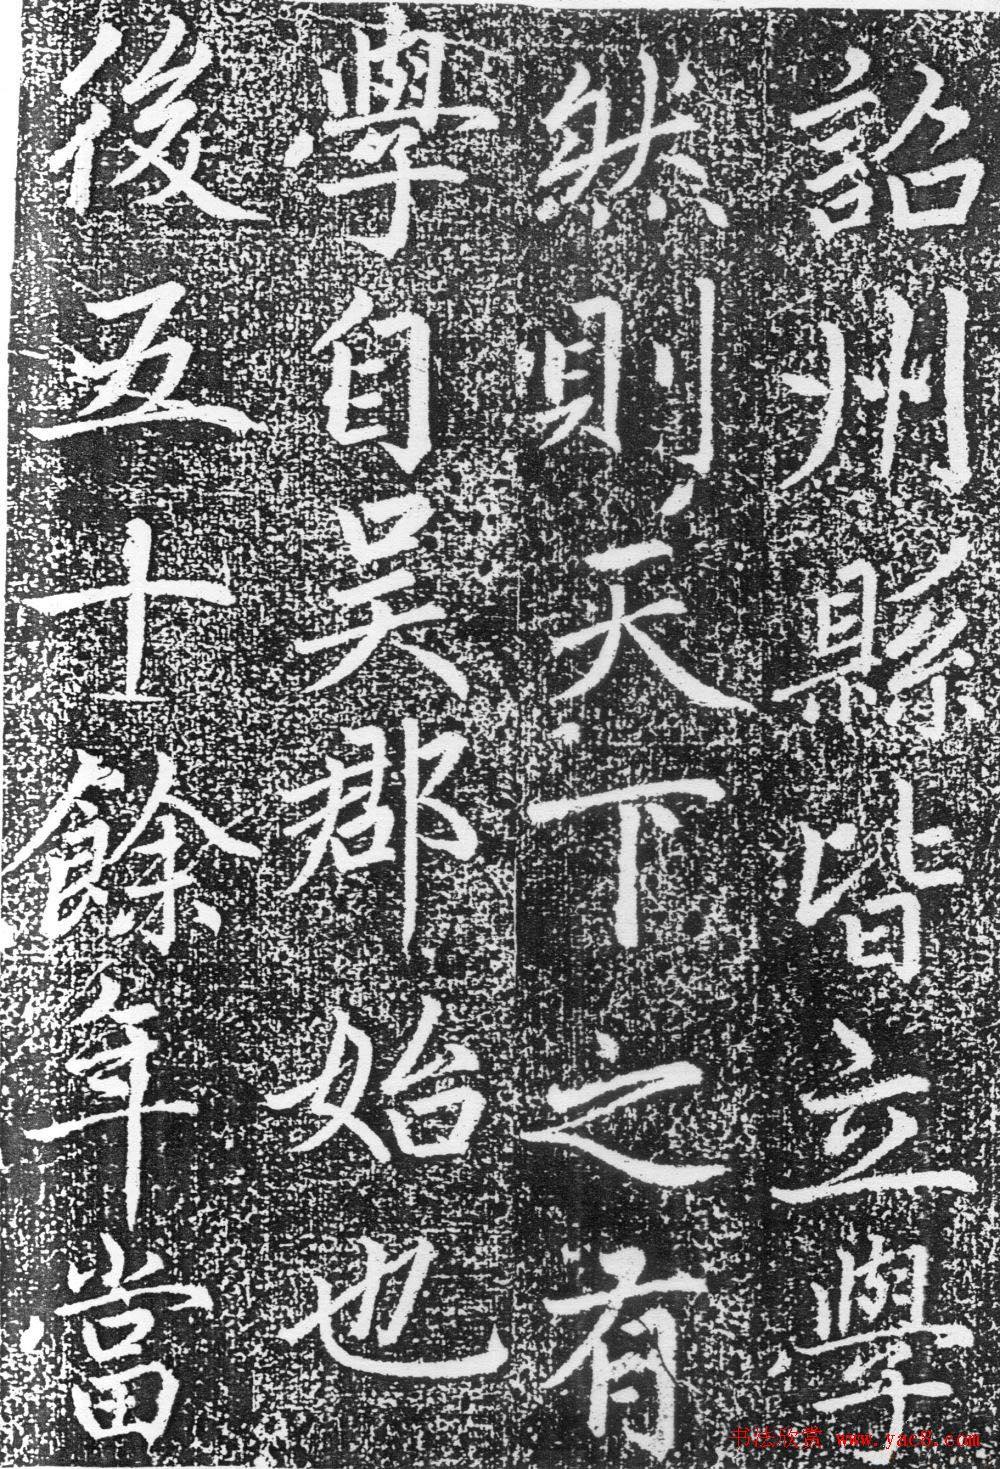 詔州縣皆立學
然則天下之有
學自吴郡始也
後五十餘年當
书法欣赏 www.yac8.com